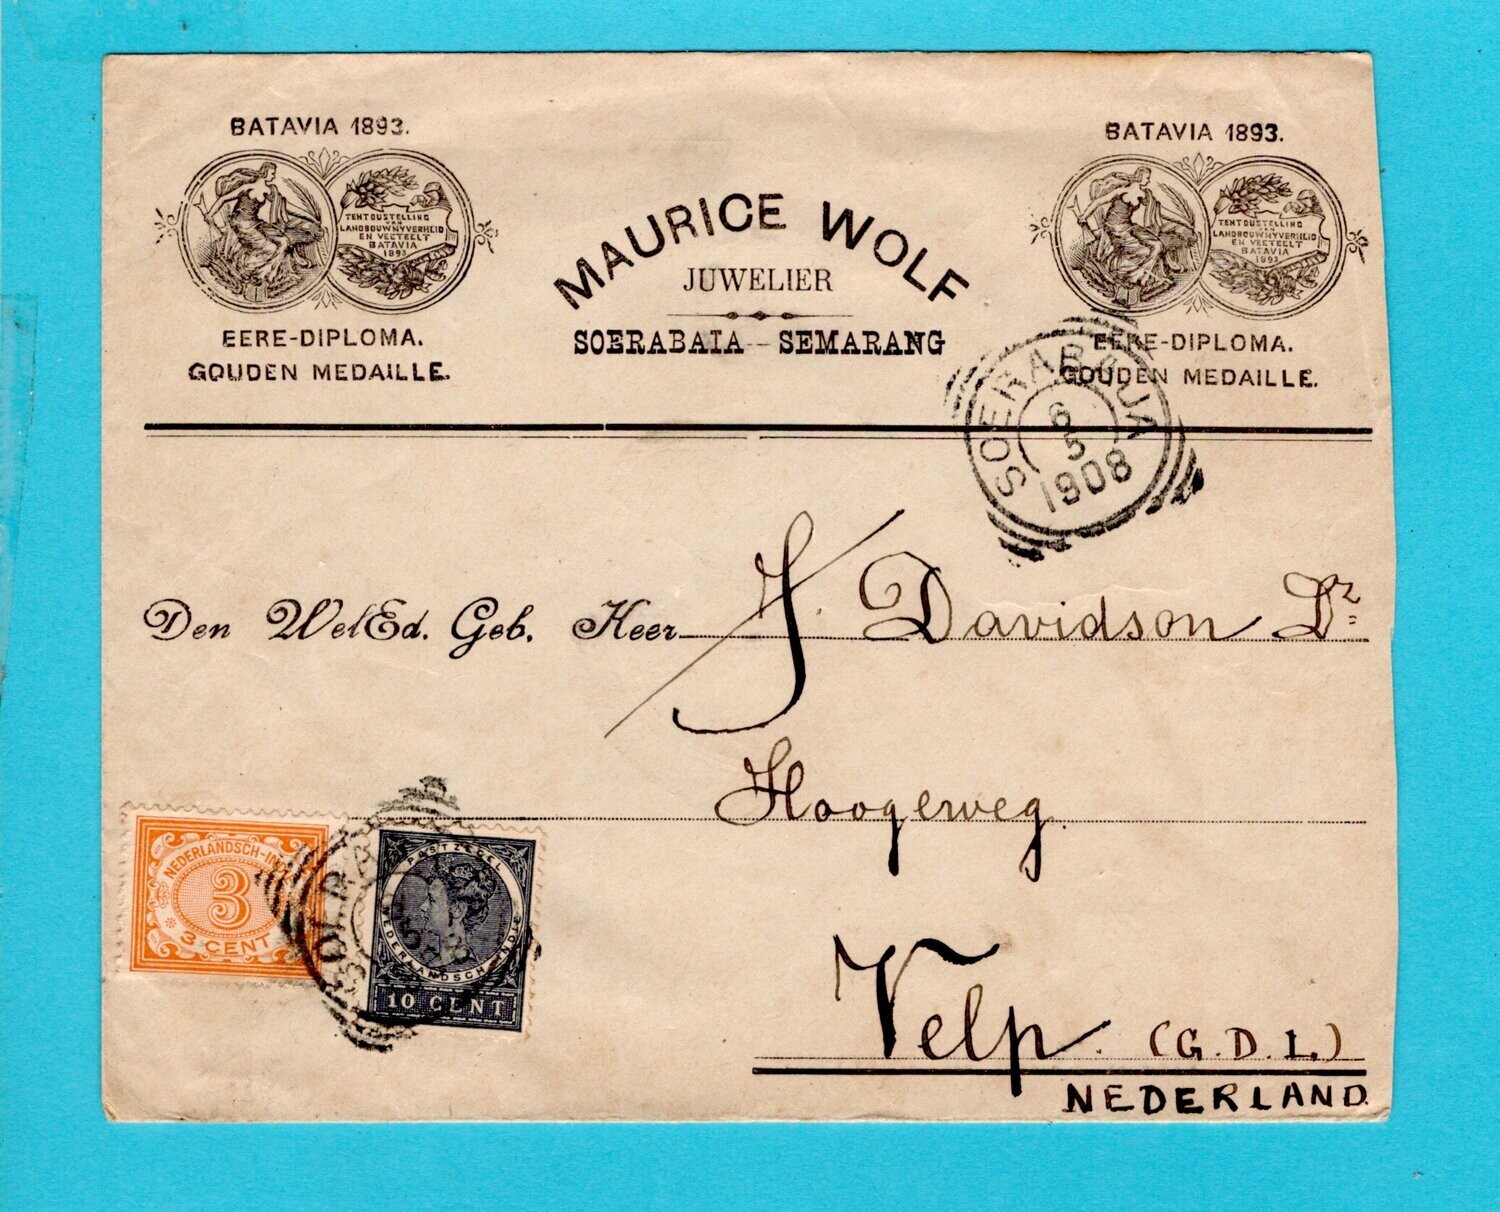 BATAVIA 1893.
TENTOUSTELLING
VAN
LANDBOUW NYVERHEID
EN VEETEELT
BATAVIA
1893
EERE-DIPLOMA.
GOUDEN MEDAILLE.
MAURICE WOLF
JUWELIER
SOERABAIA - SEMARANG
BATAVIA 1893.
TENTOUSTELLING
VAN
LANDBOUW NYVERHEID
EN VEETEELT
BATAVIA
1893
EERE-DIPLOMA.
GOUDEN MEDAILLE.
SOERABAJA
6
5
1908
Den WelEd. Geb. Heer J. Davidson Dz
Hoogeweg.
Velp. (G.D.L.)
NEDERLAND.
NEDERLANDSCH-IN
3
3 CENT
POSTZEGEL
NEDERLANDSCH-INDIE
10 CENT